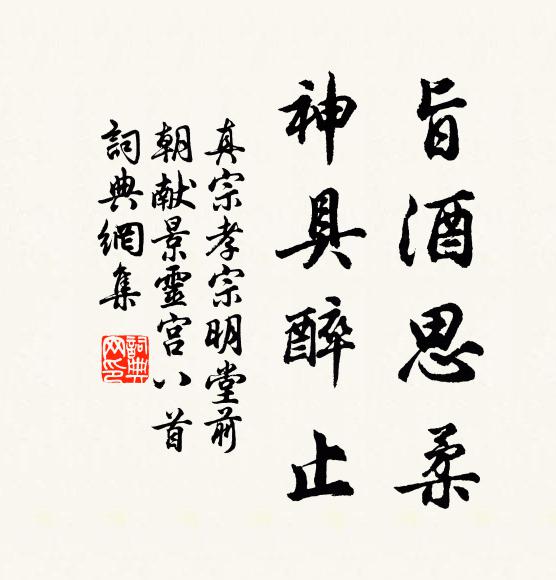 旨酒思柔
神具醉止
真宗孝宗明堂前
朝献景靈宫八首
詞典網集
詞典
网印